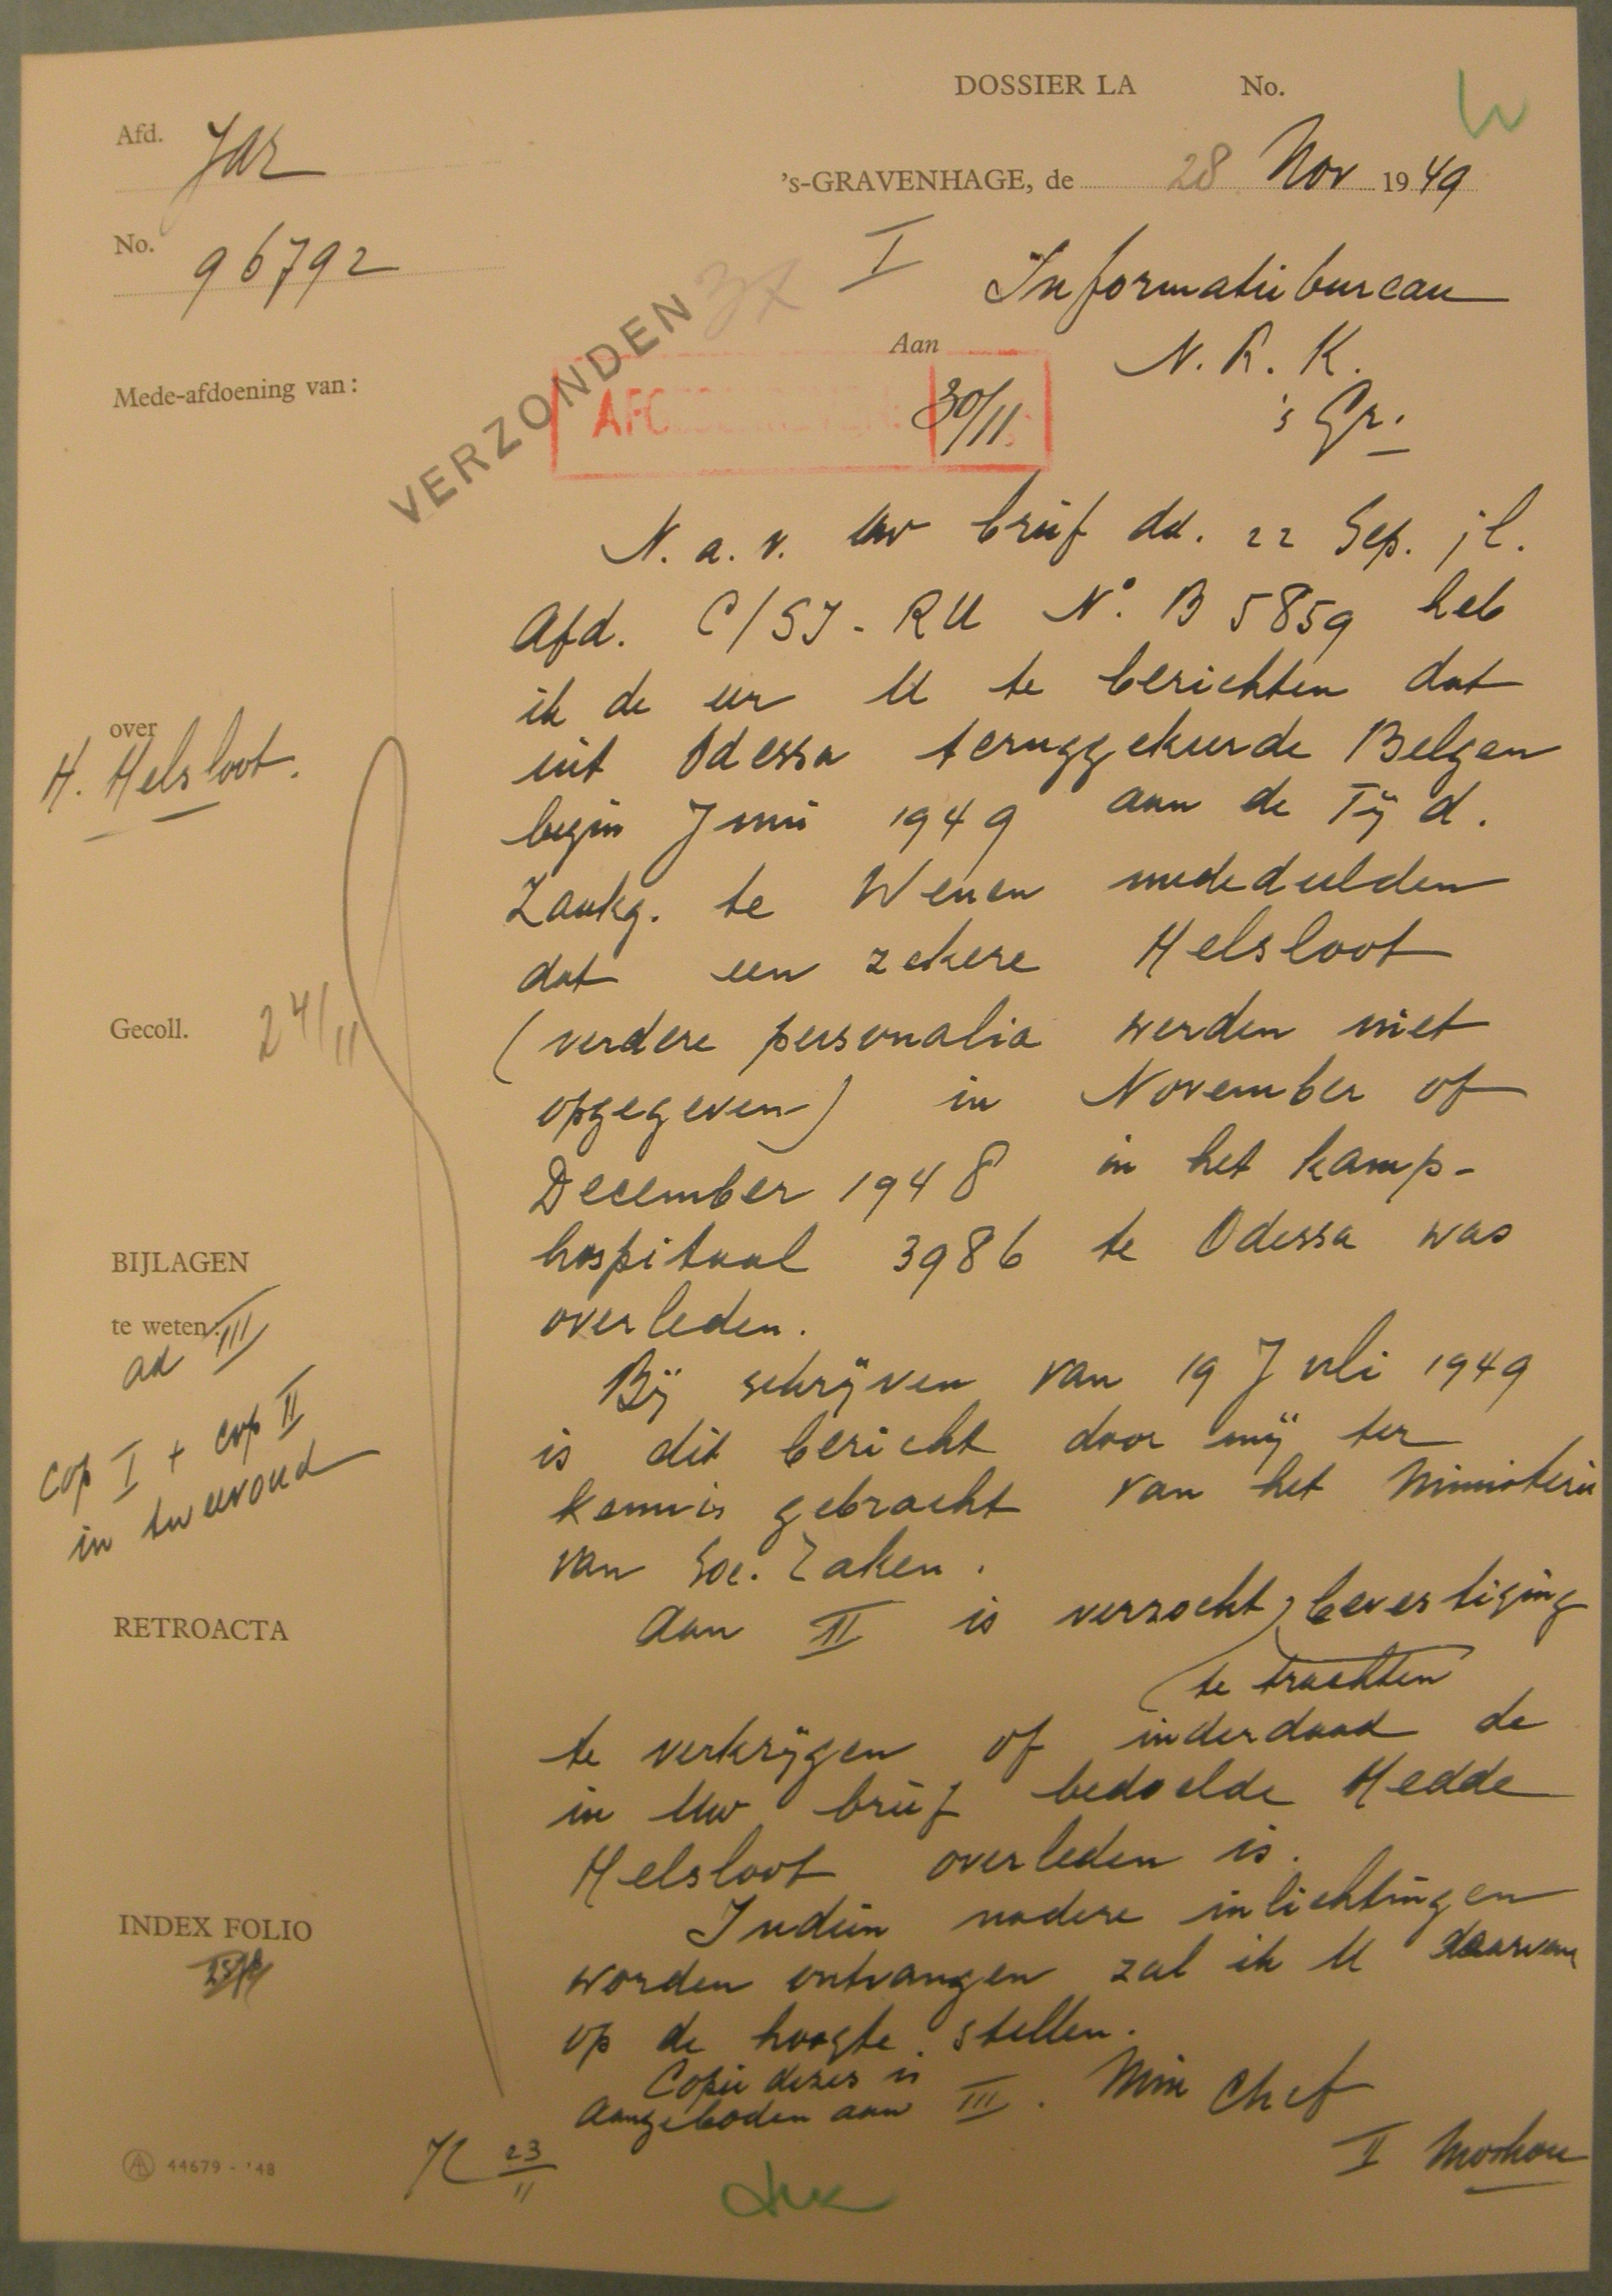 DOSSIER LA No.
Afd. JAZ
's-GRAVENHAGE, de 28 Nov 1949
No. 96792
I
Informatiebureau
VERZONDEN
Aan
N. R. K.
's Gr.
30/11
Mede-afdoening van:
N. a. v. Uw brief dd. 22 Sep. jl.
Afd. C/SJ - RU No. B 5859 heb
ik de eer U te berichten dat
uit Odessa teruggekeerde Belgen
begin Juni 1949 aan de Tijd.
Zaakg. te Wenen mededeelden
dat een zekere Helsloot
(verdere personalia werden niet
opgegeven) in November of
December 1948 in het kamp-
hospitaal 3986 te Odessa was
overleden.
Bij schrijven van 19 Juli 1949
is dit bericht door mij ter
kennis gebracht van het Ministerie
van Soc. Zaken.
Aan II is verzocht bevestiging
te trachten
te verkrijgen of inderdaad de
in Uw brief bedoelde Hedde
Helsloot overleden is.
Indien nadere inlichtingen
worden ontvangen zal ik U daarvan
op de hoogte stellen.
Copie dezes is
aangeboden aan III.
Min Chef
II Moskou
over
H. Helsloot.
Gecoll. 24/11
BIJLAGEN
te weten:
ad III
cop I + cop II
in tweevoud
RETROACTA
INDEX FOLIO
44679 - '48
23/11